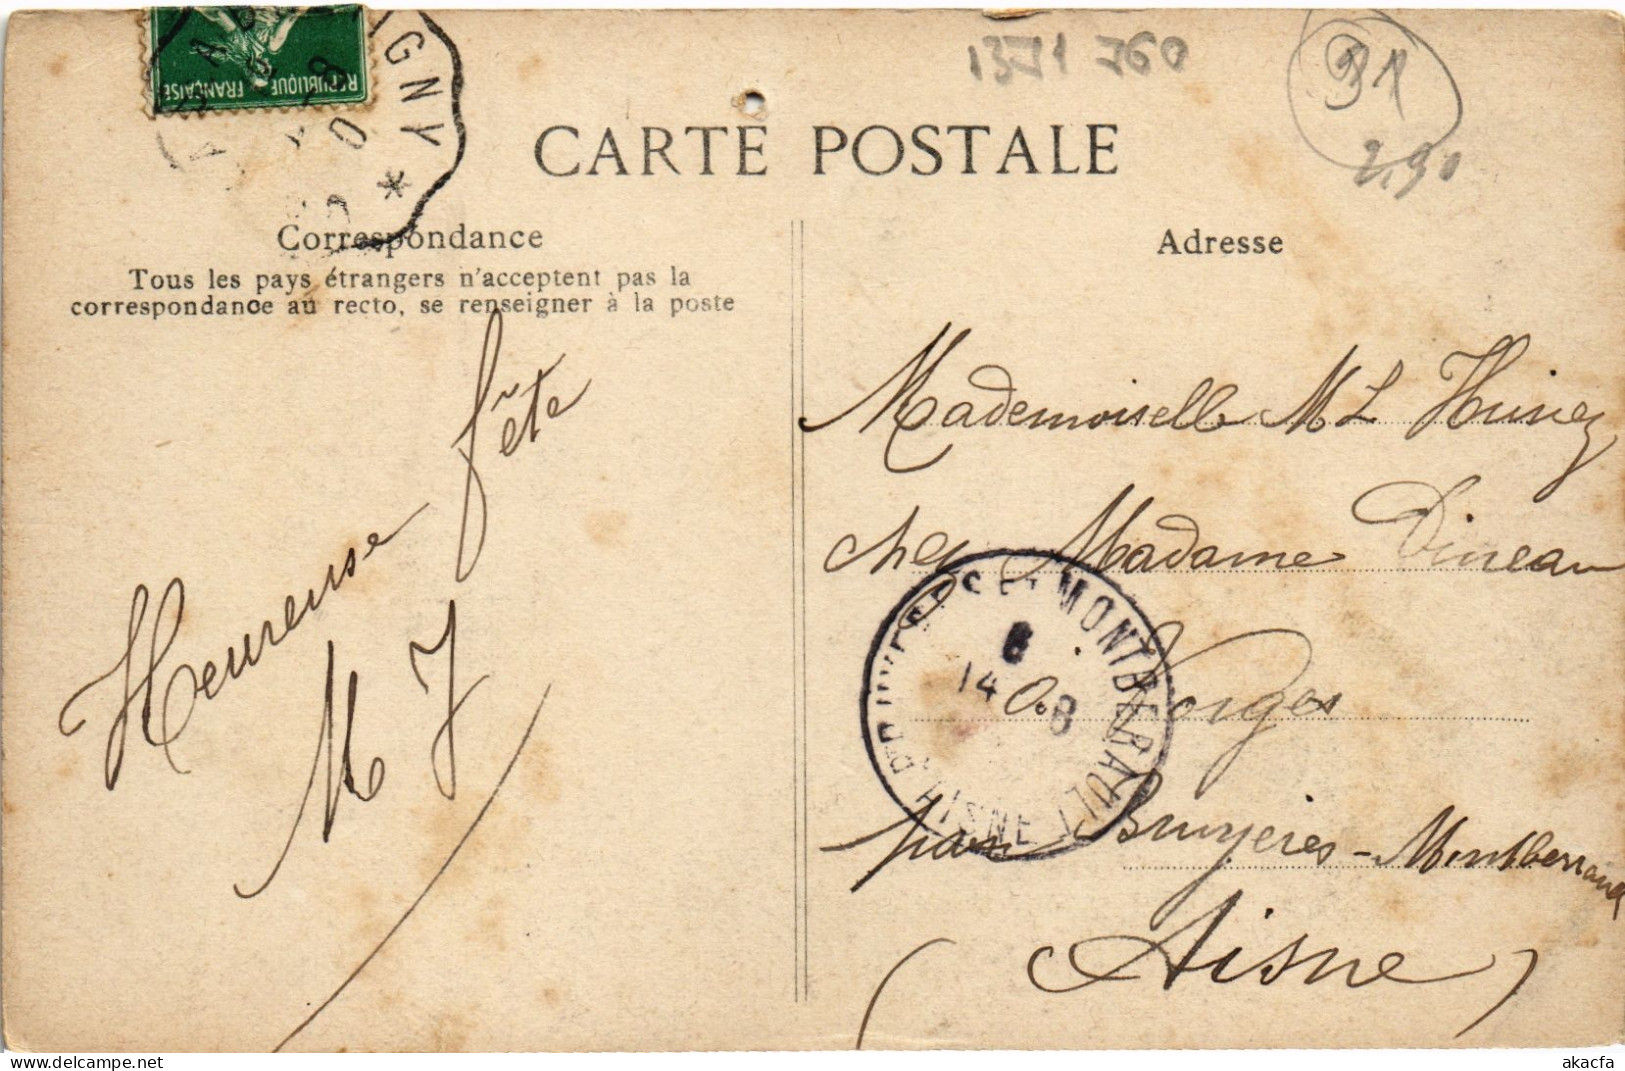 REPUBLIQUE FRANÇAISE
IGNY *
1371 760
91
2,90
CARTE POSTALE
Correspondance
Tous les pays étrangers n'acceptent pas la
correspondance au recto, se renseigner à la poste
Heureuse fête
M J
Adresse
Mademoiselle M L
chez Madame Dineau
à Vorges
par Bruyères-Montberault
(Aisne)
BRUYÈRES ET MONTBERAULT
AISNE
8
14 8
akacfa